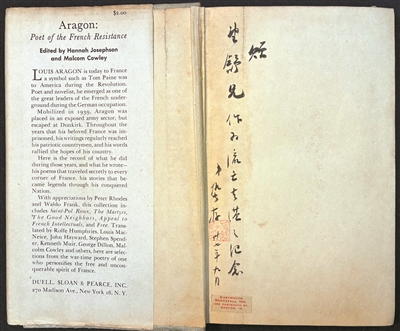 $2.00
Aragon:
Poet of the French Resistance
Edited by Hannah Josephson
and Malcolm Cowley
LOUIS ARAGON is today to France
a symbol such as Tom Paine was
to America during the Revolution.
Poet and novelist, he emerged as one of
the great leaders of the French under-
ground during the German occupation.
Mobilized in 1939, Aragon was
placed in an exposed army sector; but
escaped at Dunkirk. Throughout the
years that his beloved France was im-
prisoned, his writings regularly reached
his patriotic countrymen, and his words
rallied the hopes of his country.
Here is the record of what he did
during those years, and what he wrote—
his poems that traveled secretly to every
corner of France, his stories that be-
came legends through his conquered
Nation.
With appreciations by Peter Rhodes
and Waldo Frank, this collection in-
cludes Saint-Pol Roux, The Martyrs,
The Good Neighbors, Appeal to
French Intellectuals, and Free. Trans-
lated by Rolfe Humphries, Louis Mac-
Neice, John Hayward, Stephen Spend-
er, Kenneth Muir, George Dillon, Mal-
colm Cowley and others, here are selec-
tions from the war-time poetry of one
who personifies the free and uncon-
querable spirit of France.
DUELL, SLOAN & PEARCE, INC.
270 Madison Ave., New York 16, N. Y.
兄 作為流亡香港之紀念
年九月